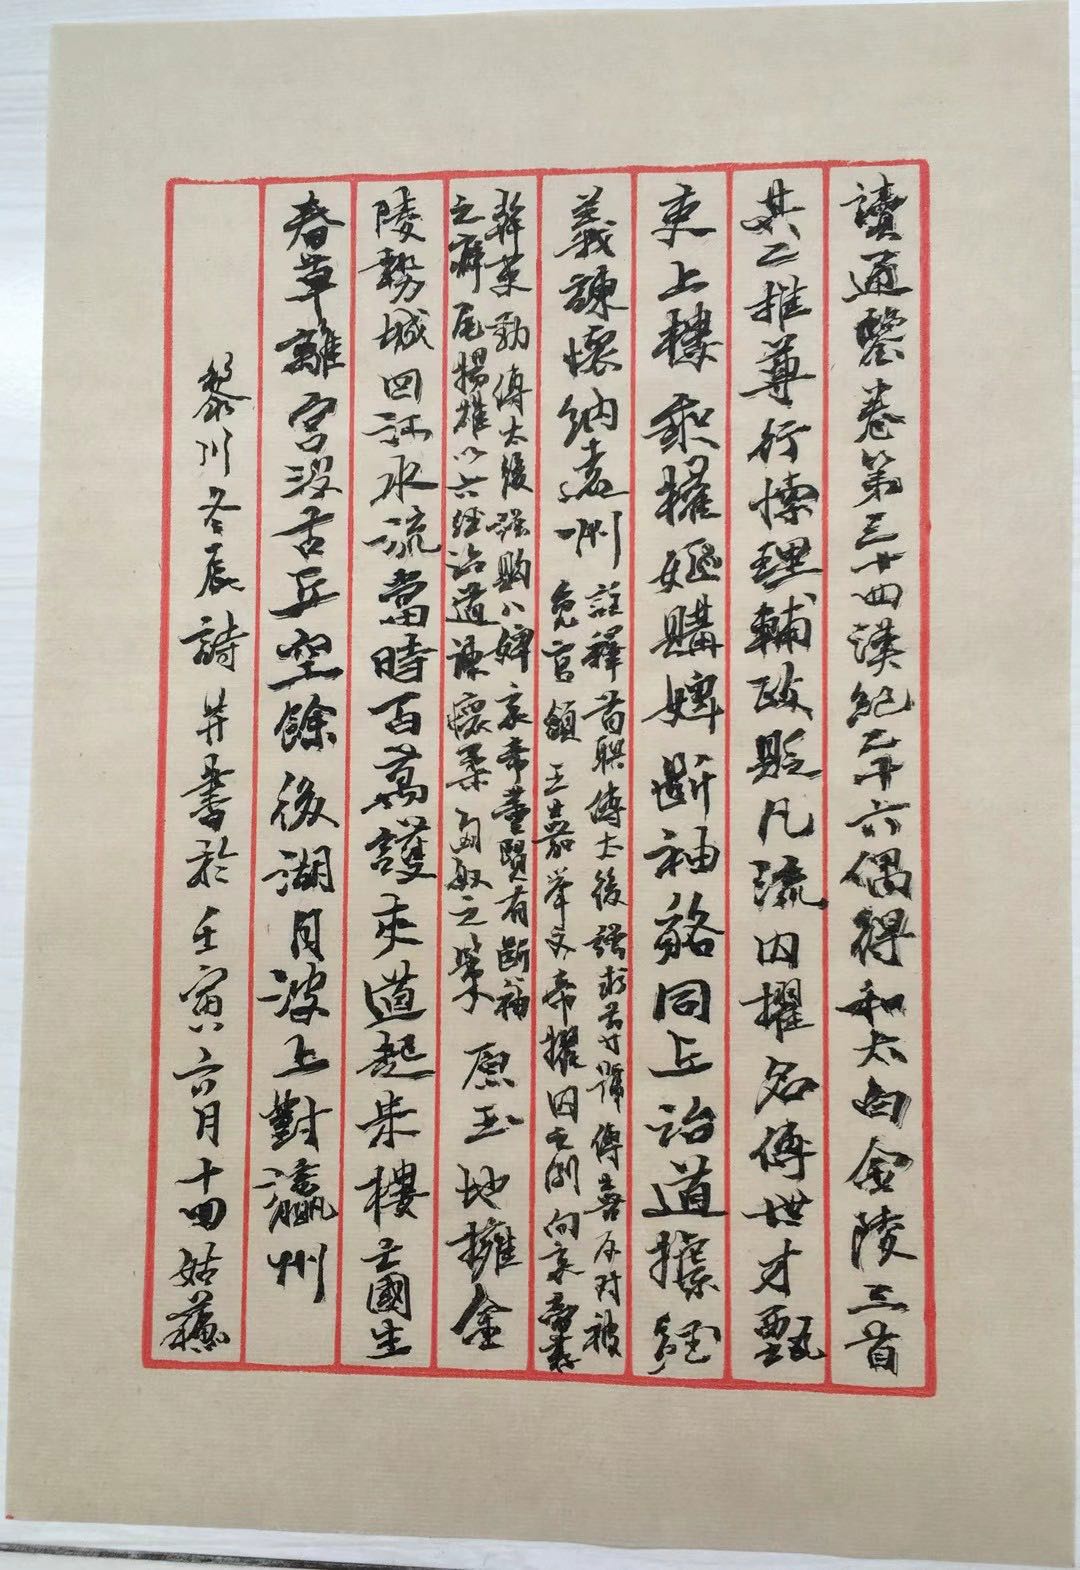 讀通鑒卷第三十四漢紀二十六偶得和太白金陵三首
其二推尊行悖理輔政貶凡流因擢名傅世才甄
吏上樓乘權嫗購婢斷袖餡同丘治道據經
義諫懷納遠州
註釋首联傅太後强求尊號傅喜反对被
免官領王嘉举文帝擢因之例向哀帝荐
幹吏勁傅太後强购八婢哀帝董賢有断袖
之癖尾揚雄以六经治道諫懷柔匈奴之策
原玉地擁金
陵勢城回江水流當時百萬護夾道起朱樓亡國生
春草離宮没古丘空餘後湖月波上對瀛州
黎川冬辰詩并書於壬寅六月十四姑蘇